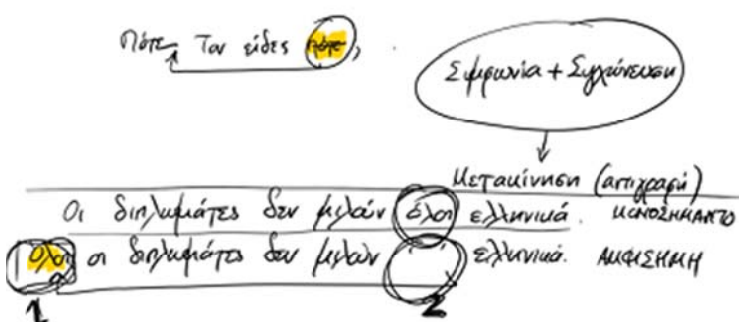 Πότε τον είδες πότε;
Συμφωνία + Συγχώνευση
Μετακίνηση (αντιγραφή)
Οι διπλωμάτες δεν μιλούν όλοι ελληνικά. ΜΟΝΟΣΗΜΑΝΤΟ
Όλοι οι διπλωμάτες δεν μιλούν ελληνικά. ΑΜΦΙΣΗΜΗ
1 2